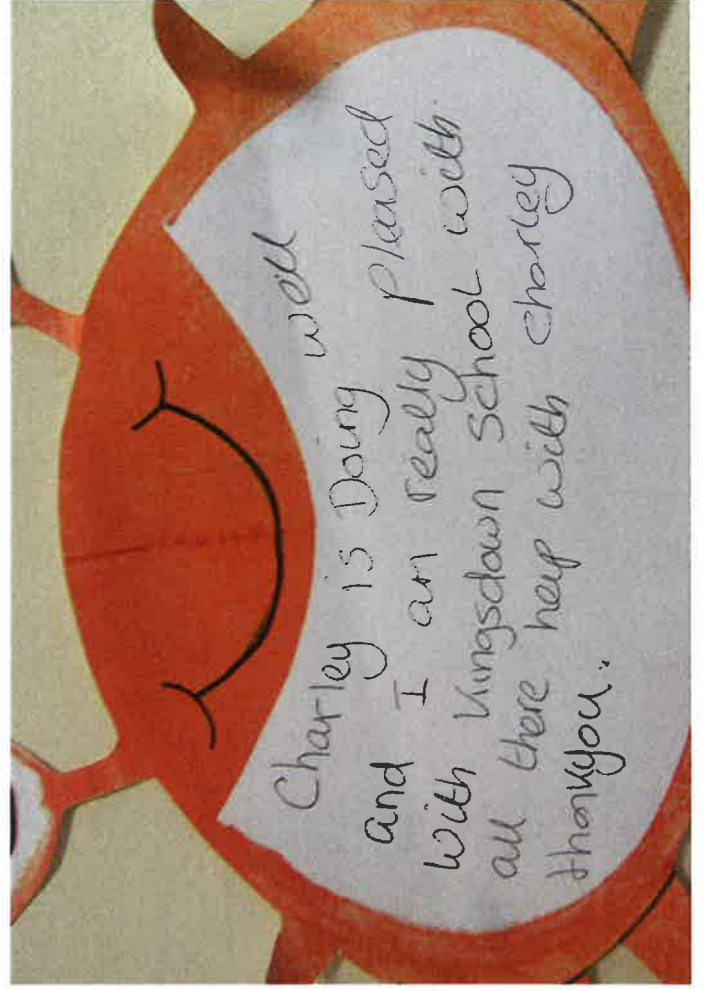 Charley is Doing well
and I am really pleased
with Kingsdown School with
all there help with Charley
thankyou.